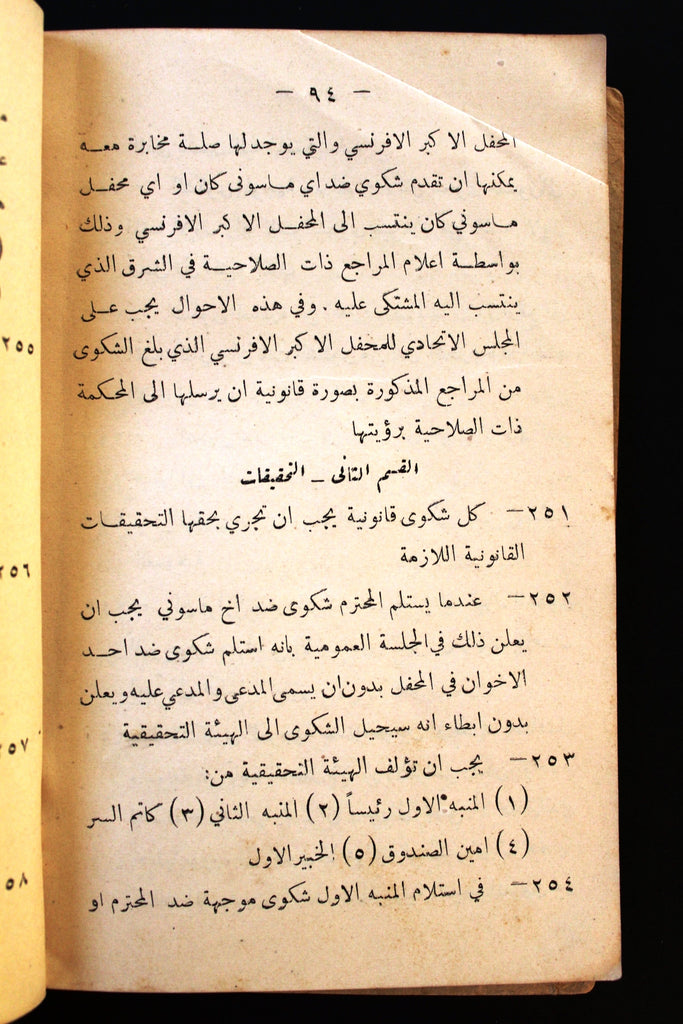 — ٩٤ —
المحفل الا كبر الافرنسي والتي يوجد لها صلـة مخابرة معـه
يمكنها ان تقدم شكوي ضد اي مـاسونى كان او اي محفـل
مـاسوني كان ينتسب الى المحفـل الا كبر الافرنسي وذلك
بواسطـة اعلام المراجع ذات الصلاحيـة في الشرق الذي
ينتسب اليه المشتكى عليه . وفي هذه الاحوال يجب عـلى
المجلس الاتحادي للمحفل الا كبر الافرنسي الذي بلغ الشكوى
من المراجع المذكورة بصورة قانونية ان يرسلها الى المحكمة
ذات الصلاحية برؤيتها
القسم الثانى — التحقيقات
٢٥١ — كل شكوى قانونية يجب ان تجري بحقها التحقيقـات
القانونية اللازمة
٢٥٢ — عندما يستلم المحترم شكوى ضد اخ ماسوني يجب ان
يعلن ذلك في الجلسة العمومية بانه استلم شكوى ضد احـد
الاخوان في المحفل بدون ان يسمى المدعى والمدعي عليه ويعلن
بدون ابطاء انه سيحيل الشكوى الى الهيئة التحقيقية
٢٥٣ — يجب ان تؤلف الهيئة التحقيقية من:
(١) المنبه الاول رئيساً (٢) المنبه الثاني (٣) كاتم السر
(٤) امين الصندوق (٥) الخبير الاول
٢٥٤ — في استلام المنبه الاول شكوى موجهة ضد المحترم او
٢٥٥
٢٥٦
٢٥٧
٥٨